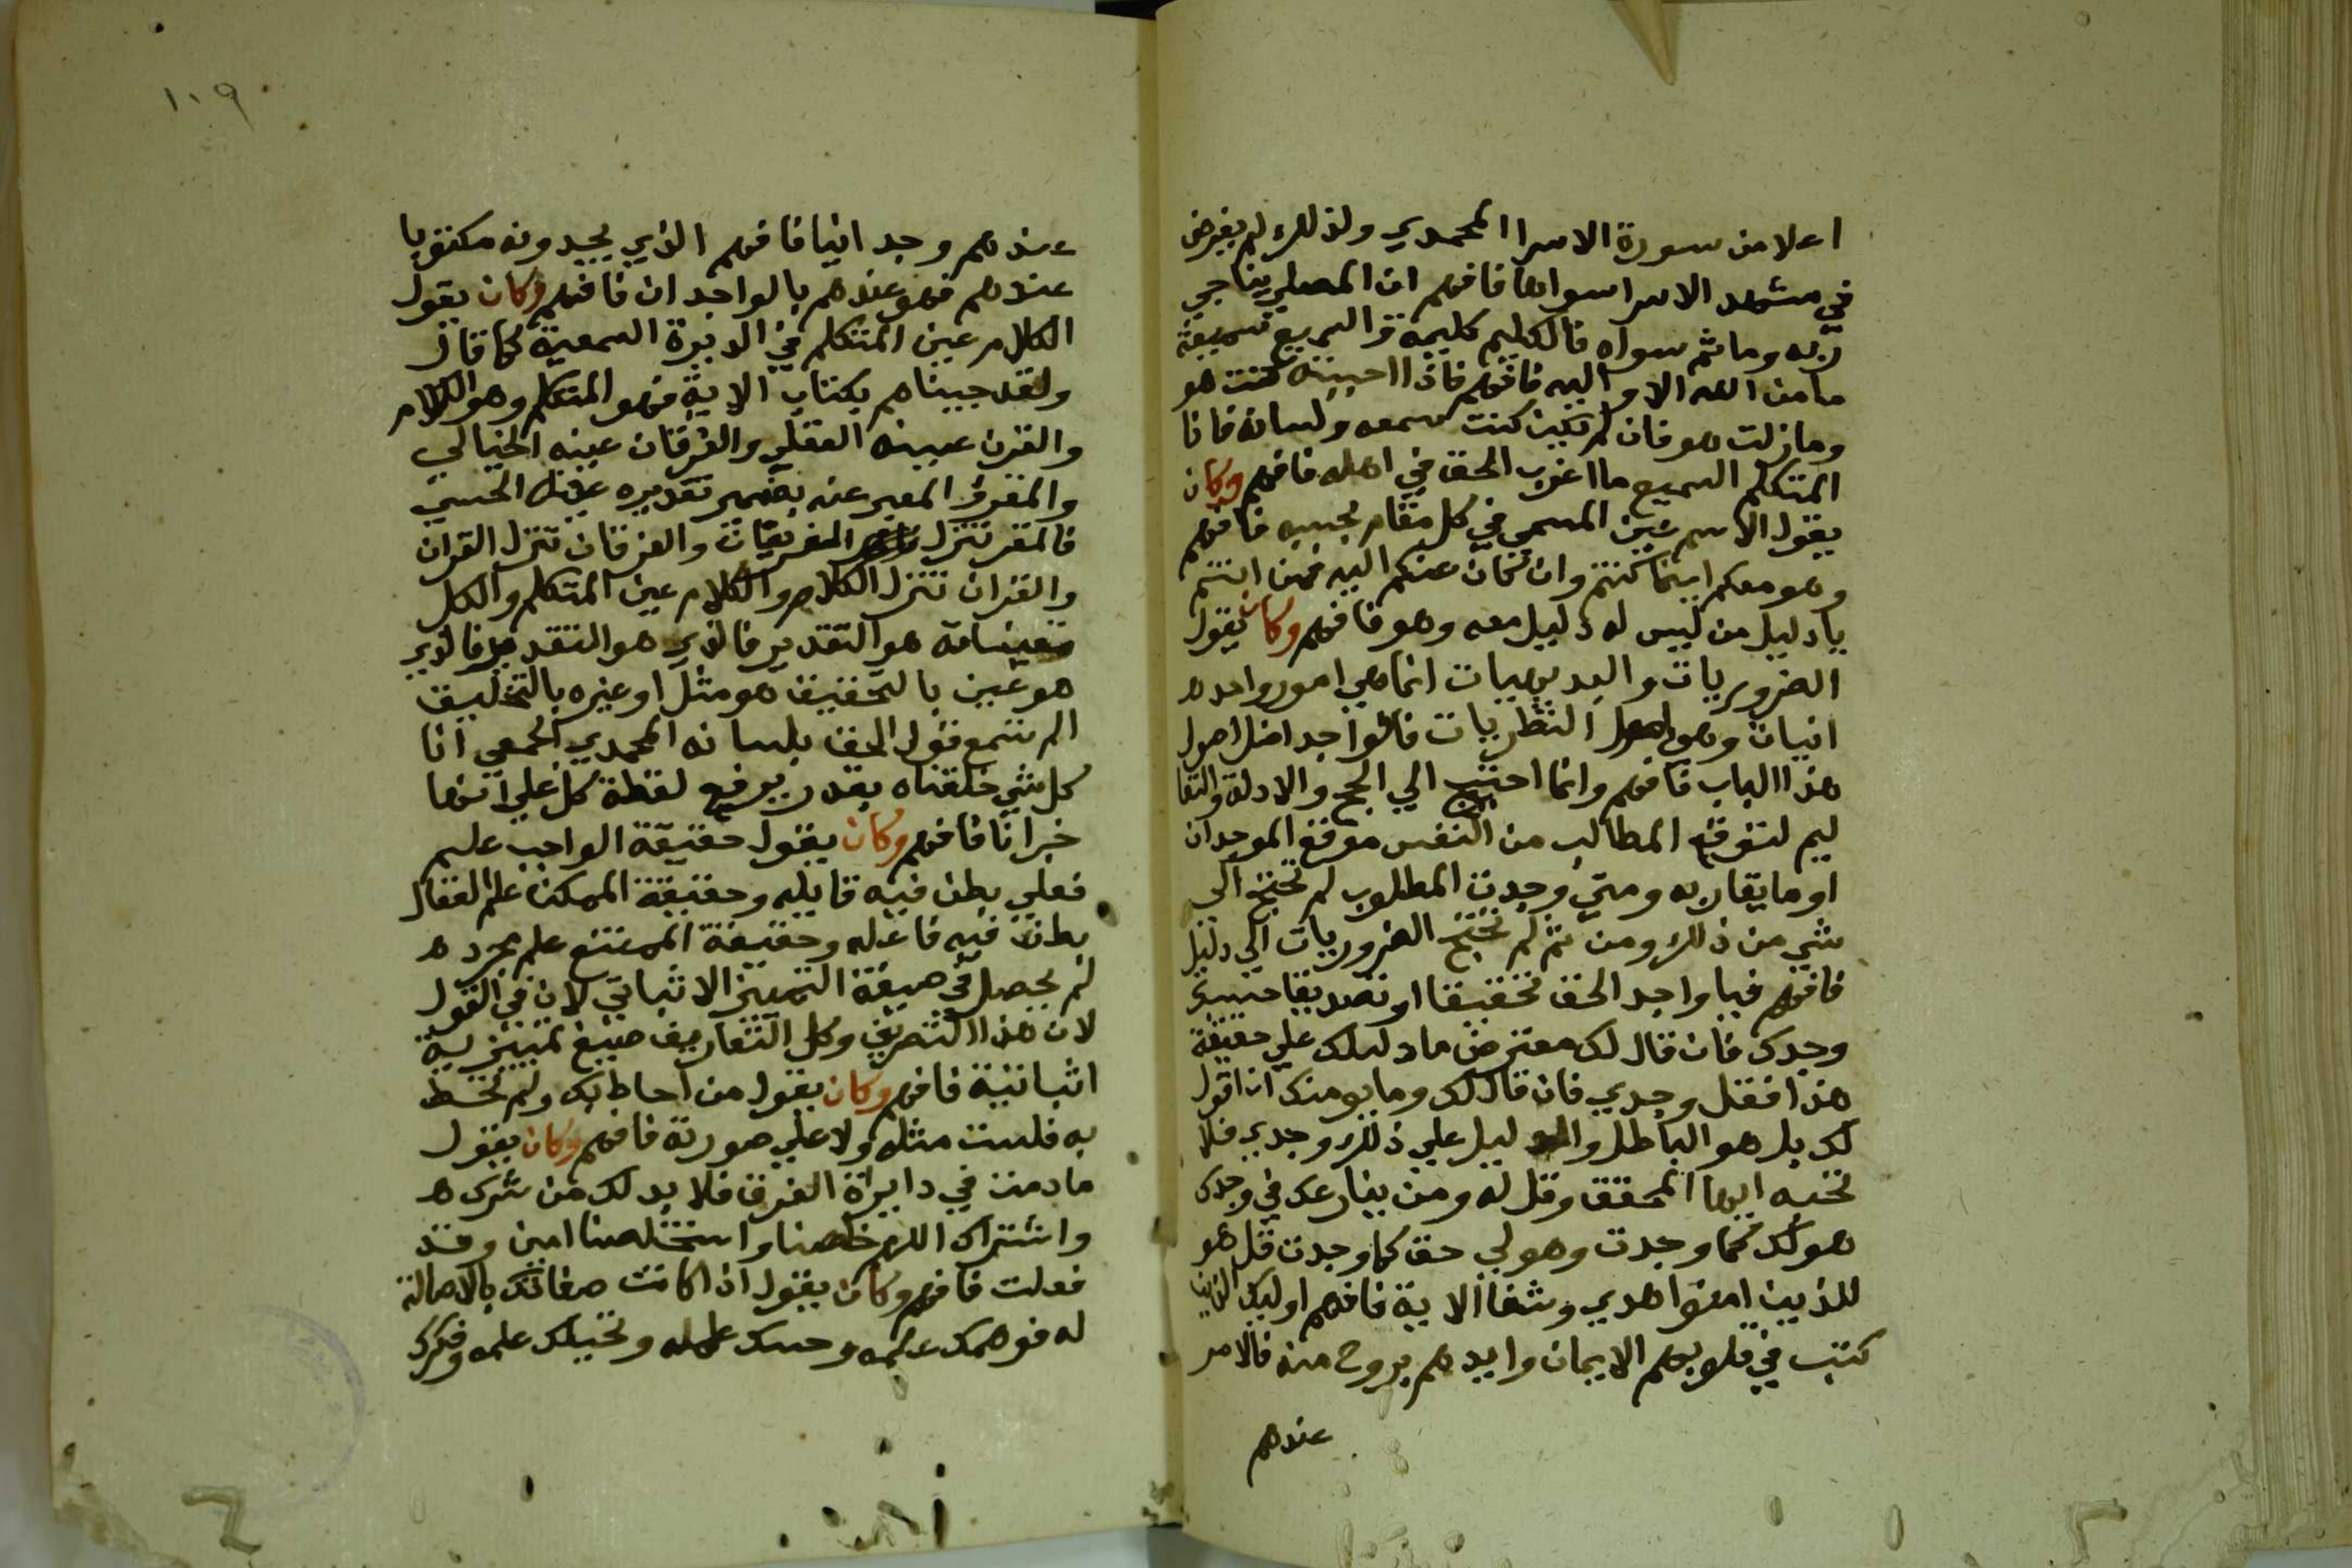 اعلا من سورة الاسرا المحمدي ولذلك لم يفرض
في مشهد الاسرا سواها فافهم ان المصلي يناجي
ربه وما ثم سواه فالكليم كليمه والسميع سميعه
ما من الله الا واليه فافهم فاذا احببته كنت هو
وما زلت هو فان لم تكن كنت سمعه ولسانه فانا
المتكلم السميع ما اغرب الحق في اهله فافهم وكان
يقول الاسم عين المسمى في كل مقام بحسبه فافهم
وهو معكم اينما كنتم وان كان عنكم اليه فمن انتم
يا دليل من ليس له دليل معه وهو فافهم وكان يقول
الضروريات والبديهيات انما هي امور واحده
انيات وهي اصول النظريات فالواجد اصل اصول
هذا الباب فافهم وانما احتيج الي الحجج والادلة والتعا
ليم لتوقع المطالب من النفس موقع الموجدان
او ما يقاربه ومتي وجدت المطلوب لم تحتج الي
شي من ذلك ومن ثم لم تحتج الضروريات الي دليل
فافهم فيا واجد الحق تحقيقا او تصديقا حسبك
وجدك فان قال لك معترض ما دليلك علي حقيقة
هذا فقل وجدي فان قال لك وما يومنك ان اقول
لك بل هو الباطل والدليل علي ذلك وجدي فلا
تجبه ايها المحقق وقل له ومن ينازعك في وجدك
هو لك كما وجدت وهو لي حق كما وجدت قل هو
للذين امنوا هدي وشفا الاية فافهم اوليك الذين
كتب في قلوبهم الايمان وايدهم بروح منه فالامر
عندهم
١٠٩
عندهم وجد انيا فافهم الذي يجدونه مكتوبا
عندهم فهو عندهم بالواجد ان فافهم وكان يقول
الكلام عين المتكلم في الديرة السمعية كما قال
ولقد جيناهم بكتاب الاية فهو المتكلم وهو الكلام
والقرن عينه العقلي والفرقان عينه الخيالي
والمقرو المعبر عنه بضمير تقديره عينه الحسي
فالمقر تنزل المفريقات والفرقان تنزل القران
والقران تنزل الكلام والكلام عين المتكلم والكل
هو التقدير فالذي هو التقدير فالذي
هو عين بالتحقيق هو مثل او غيره بالتخليق
الم تسمع قول الحق بلسانه المحمدي الجمعي انا
كل شي خلقناه بقدر برفع لفظة كل علي انها
خبر انا فافهم وكان يقول حقيقة الواجب علم
فعلي بطن فيه قابله وحقيقة الممكن علم انفعال
بطن فيه فاعله وحقيقة الممتنع علم مجرده
لم يحصل في صيغة التمييز الا ثباتي لان في القول
لان هذا التصريف وكل التعاريف صيغ تمييزية
اثباتية فافهم وكان يقول من احاط بك ولم تحط
به فلست مثله ولا علي صورته فافهم وكان يقول
ما دمت في دايرة الفرق فلا بد لك من شرك
واشتراك اللهم خلصنا واستخلصنا امين وقد
فعلت فافهم وكان يقول اذا كانت صفاتك بالاصالة
له فوهمك علمه وحسك علمه وتخيلك علمه وفكرك